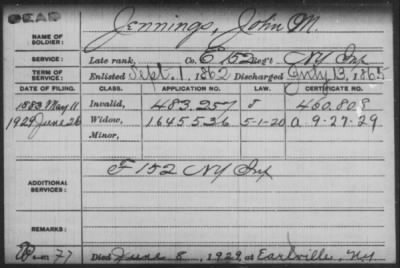 DEAD
NAME OF SOLDIER: Jennings, John M.
SERVICE: Late rank, Co. E 152 Reg't NY Inf
TERM OF SERVICE: Enlisted Sept. 1, 1862 Discharged July 13, 1865
DATE OF FILING. CLASS. APPLICATION NO. LAW. CERTIFICATE NO.
1883 May 11 Invalid, 483.257 460.808
1929 June 26 Widow, 1645.536 5-1-20 a 9-27-29
Minor,
ADDITIONAL SERVICES: F 152 NY Inf
REMARKS:
77 Died June 8, 1929 at Earlville, NY